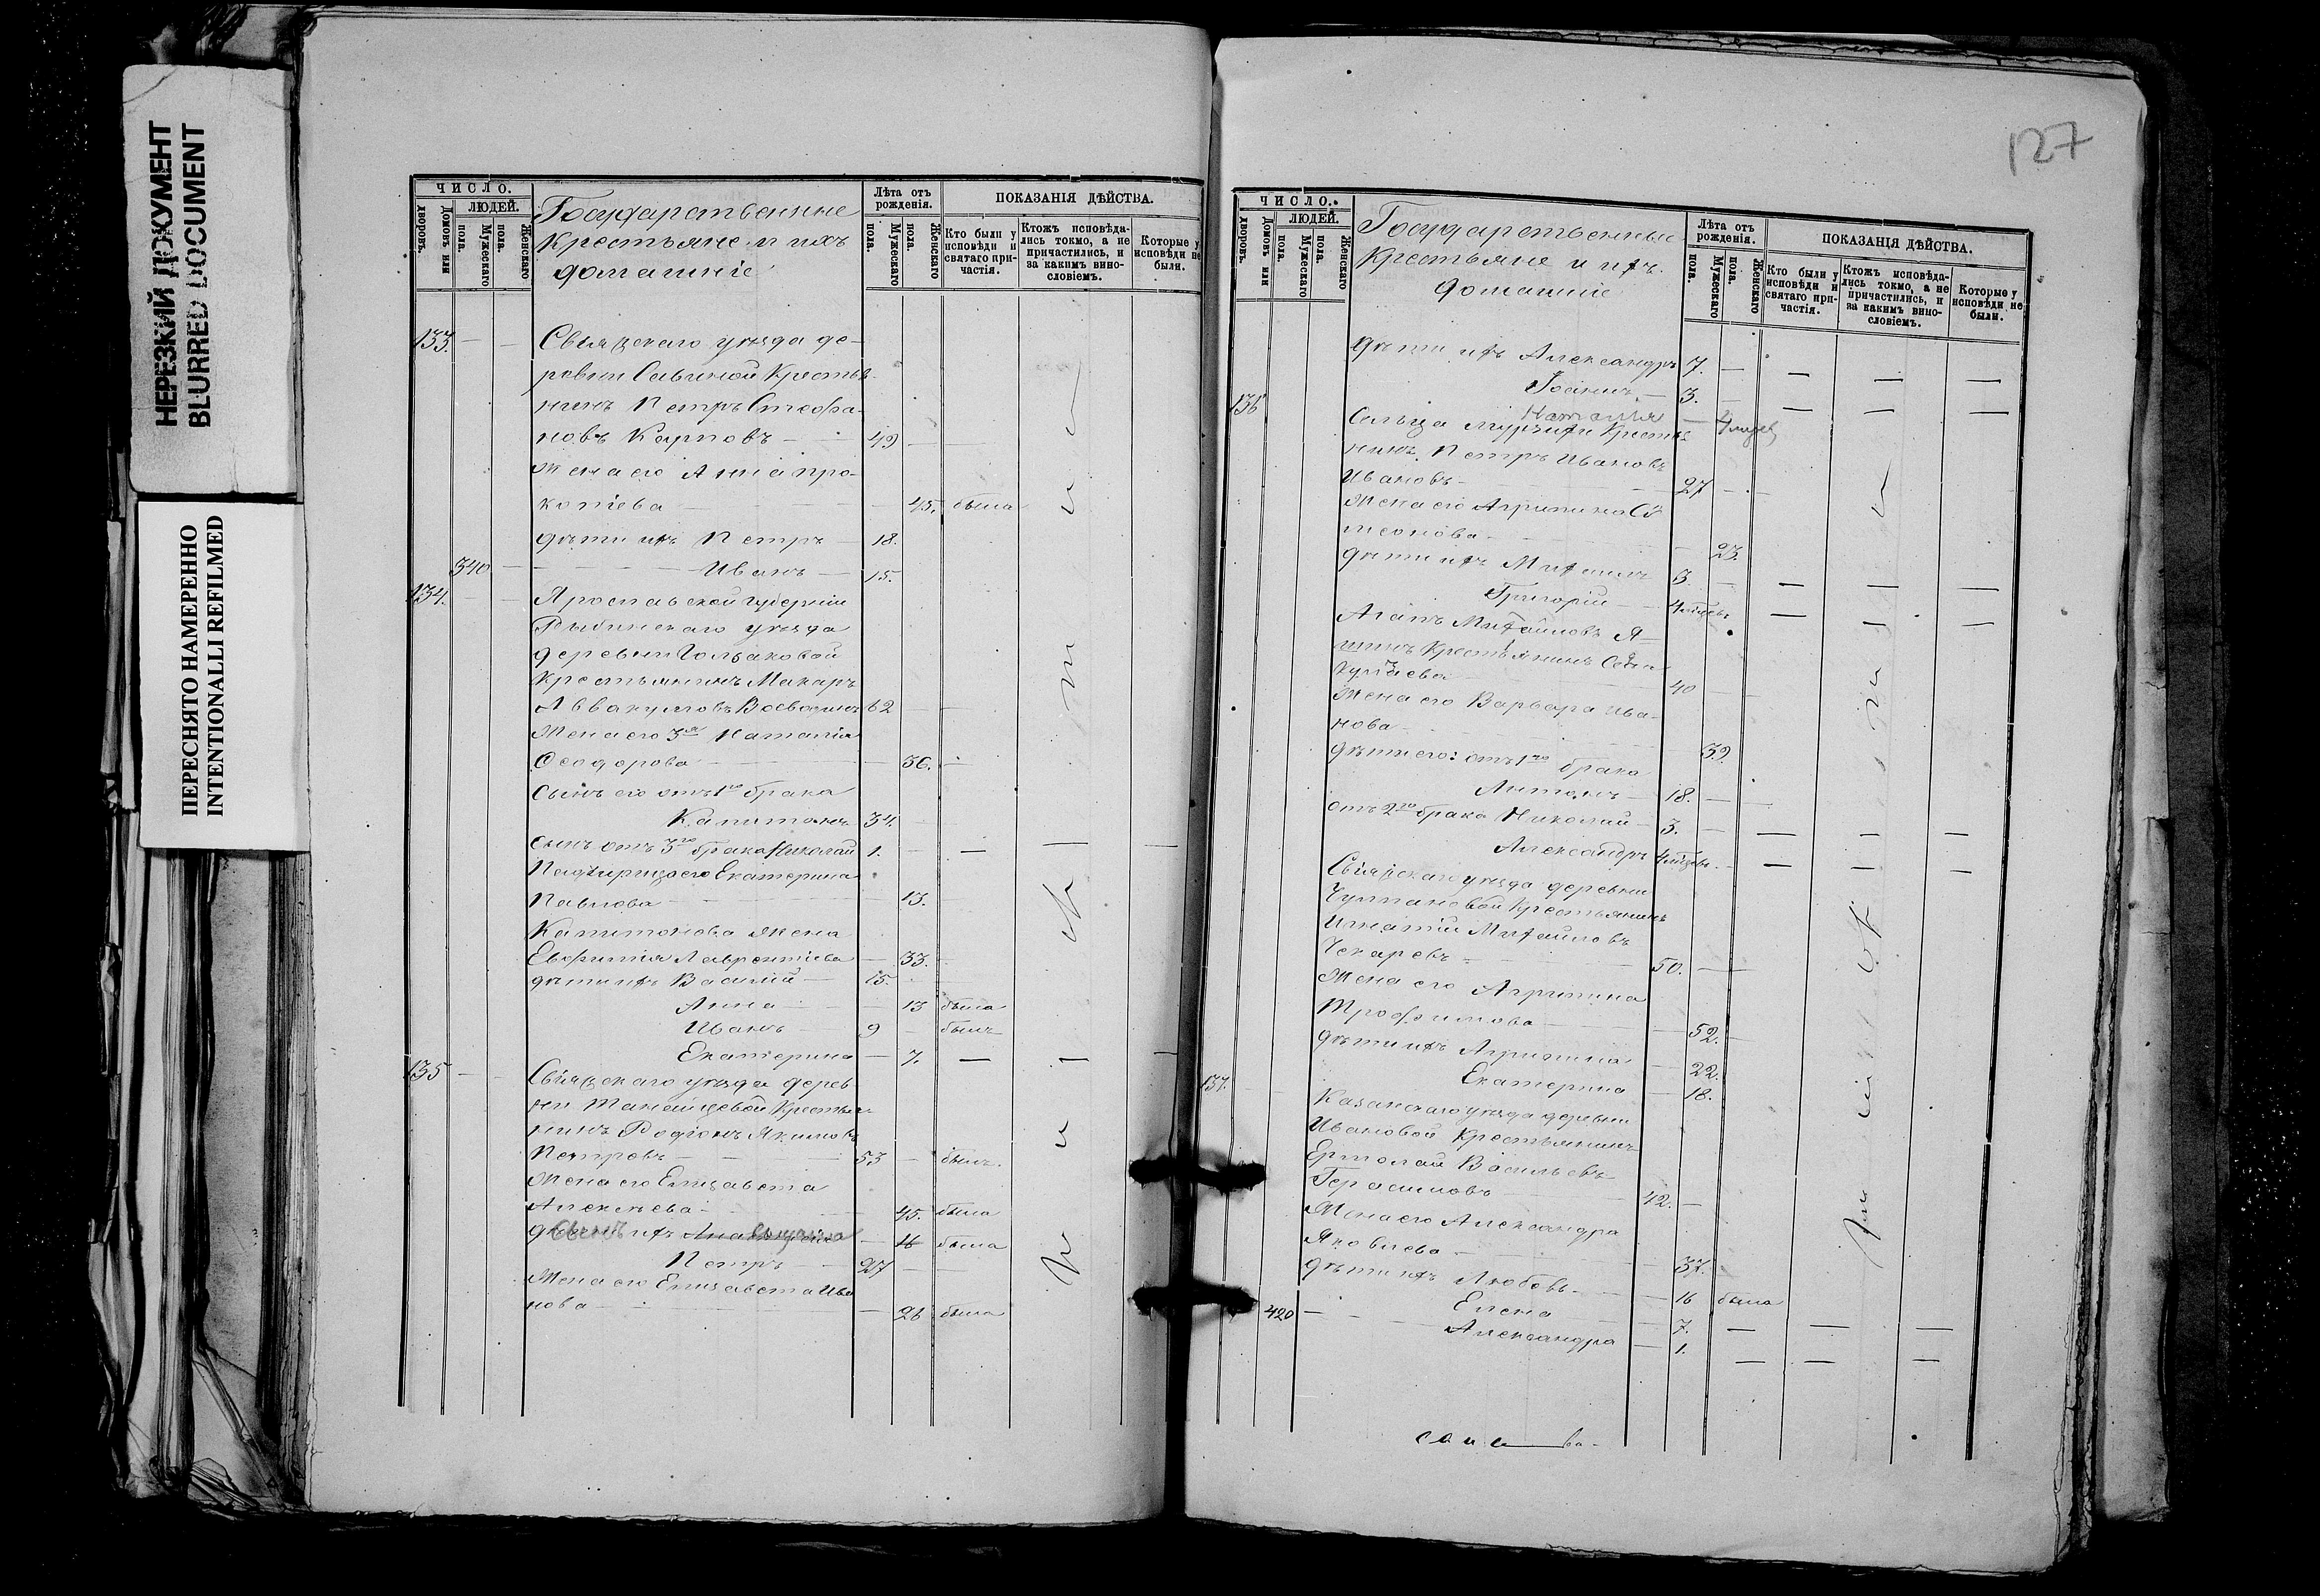 НЕРЕЗКИЙ ДОКУМЕНТ
BLURRED DOCUMENT
ПЕРЕСНЯТО НАМЕРЕННО
INTENTIONALLI REFILMED
ЧИСЛО.
ЛЮДЕЙ.
Домовъ или дворовъ.
Мужескаго пола.
Женскаго пола.
Государственные
Крестьяне и ихъ
домашніе
Лѣта отъ рожденія.
Мужескаго пола.
Женскаго пола.
ПОКАЗАНІЯ ДѢЙСТВА.
Кто были у исповѣди и святаго причастія.
Ктожъ исповѣдались токмо, а не причастились, и за какимъ винословіемъ.
Которые у исповѣди не были.
133. Свіяжскаго уѣзда де-
ревни Савиной Крестья-
нинъ Петръ Стефа-
новъ Карповъ 49
Жена его Анна Про-
копіева 45. была
дѣти ихъ Петръ 18.
340 Иванъ 15.
134. Ярославской губерніи
Рыбинскаго уѣзда
деревни
Крестьянинъ Макаръ
Аввакумовъ 62
Жена его 3я Наталія
Ѳеодорова 36.
Сынъ его отъ 1го брака
Капитонъ 34.
сынъ отъ 3го брака Николай 1.
Падчирица его Екатерина
Павлова 13.
Капитонова жена
Евфимія Лаврентіева 33.
дѣти ихъ Василій 15.
Анна 13 была
Иванъ 9 былъ
Екатерина 7.
135 Свіяжскаго уѣзда дерев-
ни Крестья-
нинъ Родіонъ Якимовъ
Петровъ 53 былъ.
Жена его Елизавета
Алексѣева 45. была
ихъ 16 была
Петръ 27
Жена его Елизавета Ива
нова 26 была
127
ЧИСЛО.
ЛЮДЕЙ.
Домовъ или дворовъ.
Мужескаго пола.
Женскаго пола.
Государственные
Крестьяне и ихъ
домашніе
Лѣта отъ рожденія.
Мужескаго пола.
Женскаго пола.
ПОКАЗАНІЯ ДѢЙСТВА.
Кто были у исповѣди и святаго причастія.
Ктожъ исповѣдались токмо, а не причастились, и за какимъ винословіемъ.
Которые у исповѣди не были.
дѣти ихъ Александръ 7.
Іоаннъ 3.
Наталія
136 Сельца Крестья
нинъ Петръ Ивановъ
Ивановъ 27
Жена его Агрипина Сѵ
меонова 23.
дѣти ихъ Михаилъ 3.
Григорій 4 мѣсяцевъ
Агапъ Михайловъ Я-
шинъ Крестьянинъ Села
40
Жена его Варвара Ива-
нова 32.
дѣти его: отъ 1го брака
Антонъ 18.
отъ 2го брака Николай 3.
Александръ
Свіяжскаго уѣзда деревни
Крестьянинъ
Игнатій Михайловъ
Чекаревъ 50.
Жена его Агрипина
Трофимова 52.
дѣти ихъ Агрипина 22.
Екатерина 18.
137. Казанскаго уѣзда деревни
Ивановой Крестьянинъ
Ермолай Васильевъ
Герасимовъ 42.
Жена его Александра
Яковлева 37.
дѣти ихъ Любовь 16 была
420 Елена 7.
Александра 1.